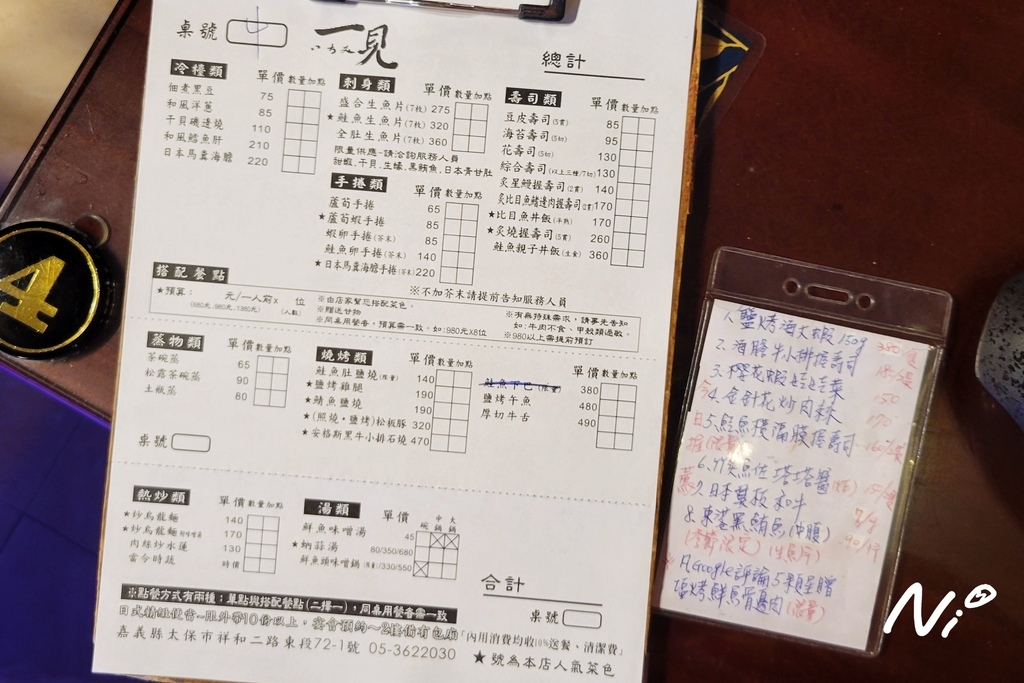 桌號
一見
總計
冷檯類 單價 數量加點
佃煮黑豆 75
和風洋蔥 85
干貝磯邊燒 110
和風鱈魚肝 210
日本馬糞海膽 220
刺身類 單價 數量加點
盛合生魚片(7枚) 275
★鮭魚生魚片(7枚) 320
全肚生魚片(7枚) 360
限量供應-請洽詢服務人員
甜蝦、干貝、生蠔、黑鮪魚、日本青甘肚
手捲類 單價 數量加點
蘆筍手捲 65
★蘆筍蝦手捲 85
蝦卵手捲(芥末) 85
鮭魚卵手捲(芥末) 140
★日本馬糞海膽手捲(芥末) 220
壽司類 單價 數量加點
豆皮壽司(5貫) 85
海苔壽司(5切) 95
花壽司(5切) 130
綜合壽司(以上三種/7切) 130
炙星鰻握壽司(2貫) 140
炙比目魚鰭邊肉握壽司(2貫) 170
★比目魚丼飯(半熟) 170
★炙燒握壽司(5貫) 260
鮭魚親子丼飯(生食) 360
※不加芥末請提前告知服務人員
搭配餐點
★預算： 元/一人前x 位
(680元.980元.1380元) (人數)
※由店家幫您搭配菜色。
※贈送甘物
※同桌用餐者，預算需一致。如:980元X8位
※有無特殊需求，請事先告知
如:牛肉不食、甲殼類過敏。
※980以上需提前預訂
蒸物類 單價 數量加點
茶碗蒸 65
松露茶碗蒸 90
土瓶蒸 80
桌號
燒烤類 單價 數量加點
鮭魚肚鹽燒(限量) 140
★鹽烤雞腿 190
★鯖魚鹽燒 190
★(照燒・鹽烤)松板豚 320
★安格斯黑牛小排石燒 470
單價 數量加點
鮭魚下巴(限量) 380
鹽烤午魚 480
厚切牛舌 490
熱炒類 單價 數量加點
★炒烏龍麵 140
★炒烏龍麵 170
肉絲炒水蓮 130
當令時蔬 時價
湯類 單價 碗 中鍋 大鍋
鮮魚味噌湯 45
★蛤蒜湯 80/350/680
鮮魚頭味噌鍋 (限量)/330/550
合計
桌號
※點餐方式有兩種：單點與搭配餐點(二擇一)，同桌用餐者需一致
日式精緻便當~限外帶10份以上，宴會預約~2樓備有包廂
「內用消費均收10%送餐、清潔費」
嘉義縣太保市祥和二路東段72-1號 05-3622030
★號為本店人氣菜色
4
1.鹽烤海大蝦150g
2.海膽牛小排握壽司
3.櫻花蝦娃娃菜 150
4.金針花炒肉絲 170
5.鮭魚橫隔膜握壽司
6.竹筴魚佐塔塔醬
7.日本莫板和牛
8.東港黑鮪魚(中腹)
(季節限定)(生魚片)
凡Google評論5顆星贈
鹽烤鮮魚骨邊肉(限量)
Ni